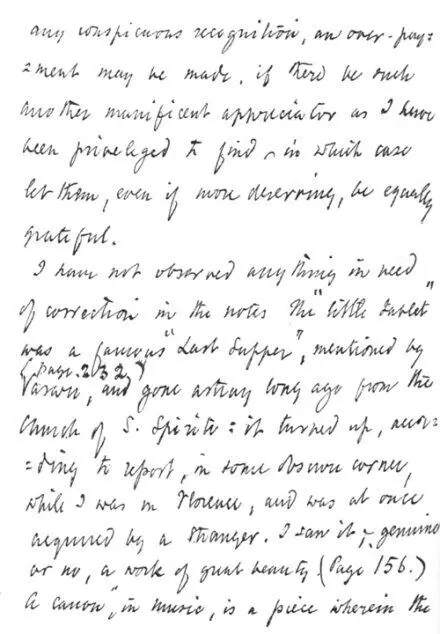 any conspicuous recognition, an over-pay=
=ment may be made, if there be such
another munificent appreciator as I have
been privileged to find - in which case
let them, even if more deserving, be equally
grateful.
I have not observed anything in need
of correction in the notes. The "little tablet"
was a famous "Last Supper", mentioned by
(page.232.)
Vasari, and gone astray long ago from the
Church of S. Spirito: it turned up, accor-
=ding to report, in some obscure corner,
while I was in Florence, and was at once
acquired by a stranger. I saw it, genuine
or no, a work of great beauty (Page 156.)
A canon, in music, is a piece wherein the